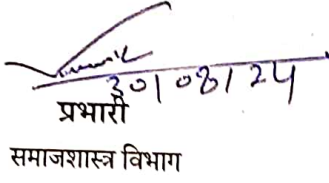 30/08/24
प्रभारी
समाजशास्त्र विभाग